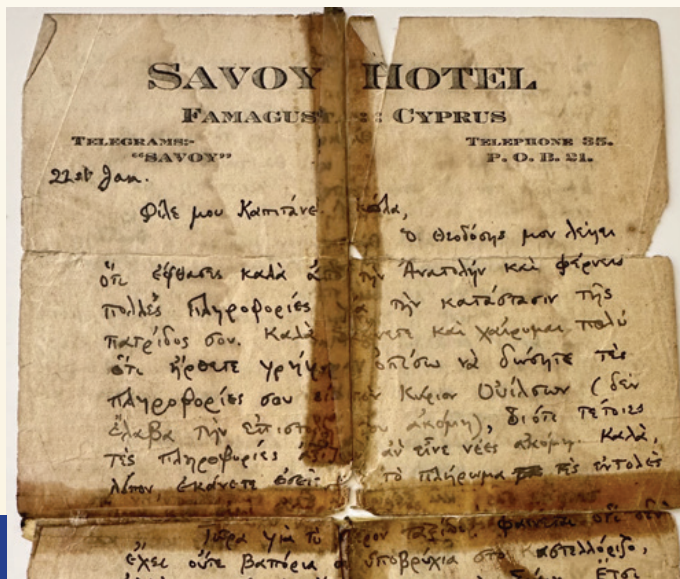 SAVOY HOTEL
FAMAGUST :: CYPRUS
TELEGRAMS:-
TELEPHONE 35.
"SAVOY"
P. O. B. 21.
22st Jan.
Φίλε μου Καπιτάνε
ὁ Θεοδόσης μου λέγει
ὅτι ἔφθασες καλὰ ἀπὸ τὴν Ἀνατολὴν καὶ φέρνεις
πολλὲς πληροφορίες τὴν κατάστασιν τῆς
πατρίδος σου. Καλὰ καὶ χαίρομαι πολὺ
ὅτι ἤρθετε ὀπίσω νὰ δώσητε τὲς
πληροφορίες σου Κύριον Οὐίλσων (δὲν
ἔλαβα τὴν ἀκόμη), διότι τέτοιες
τὲς πληροφορίες ἂν εἶνε νέες ἀκόμη. Καλὰ,
λοιπὸν ἐκάνετε ἐσεῖς τὸ πλήρωμα τὲς ἐντολὲς
Τώρα γιὰ τὸ ταξίδι. Φαίνεται ὅτι δὲν
ἔχει οὔτε βαπόρια ὑποβρύχια στὸ Καστελλόριζο,
ἔτσι